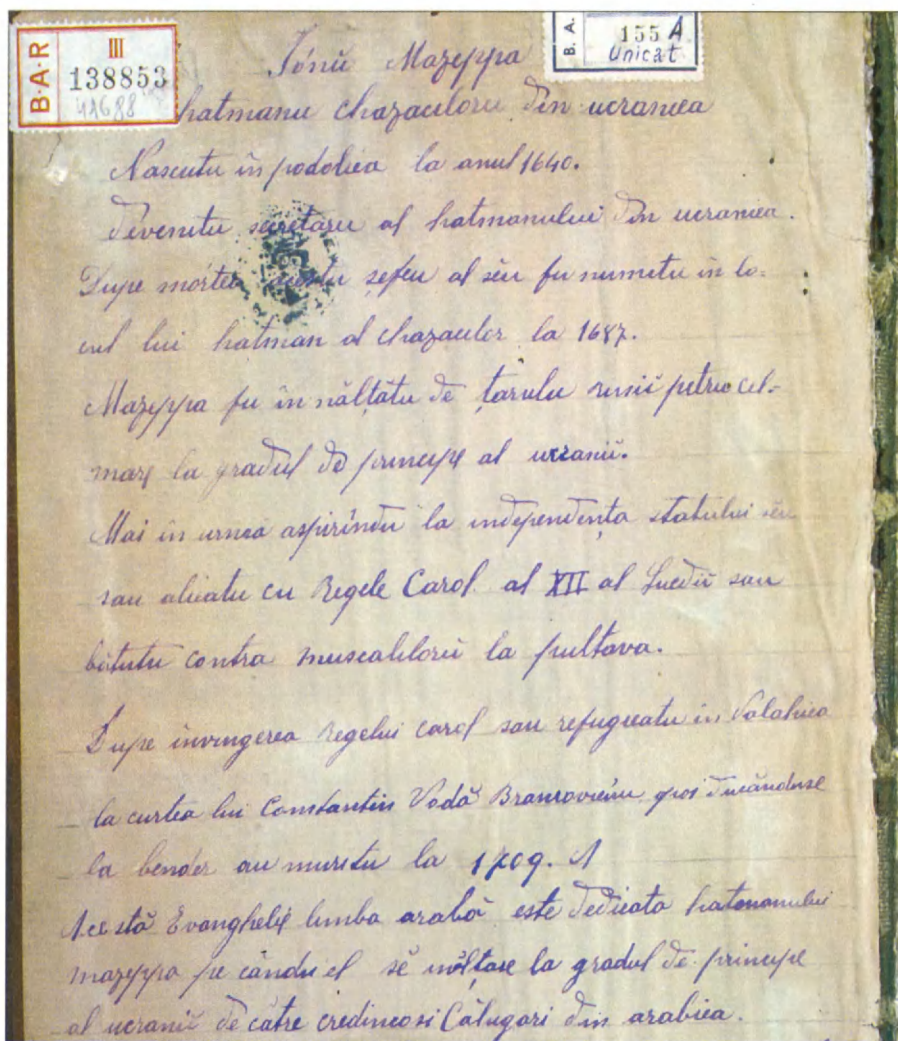 B·A·R
III
138853
41688
B. A.
155 A
Unicat
Iónŭ Mazeppa
hatmanu chazacilorŭ din ucraniea
Nascutu in podoliea la anul 1640.
Devenitu secretaru al hatmanului din ucraniea.
Dupe mortea acestu șefeu al sĕu fu numitu in lo=
cul lui hatman al chazacilor la 1687.
Mazeppa fu in nălțătu de țarulu rusii petru cel=
mare la gradul de principe al ucranii.
Mai in urmea aspirindu la independența statului sĕu
sau aliatu cu Regele Carol al XII al Suedii sau
bătutu contra muscalilorŭ la pultava.
Dupe invingerea Regelui Carol sau refugieatu in Valahiea
la curtea lui Constantin Vodă Brancovĕnu, ducănduse
la bender au muritu la 1709.
Acestă Evanghelie limba arabă este dedicata hatmanului
mazeppa pe căndu el se inălțase la gradul de principe
al ucranii de către credincosi Călugari din arabiea.